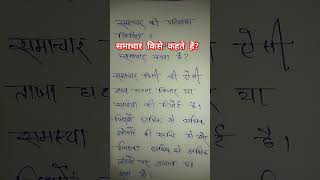 समाचार की परिभाषा
लिखिए।
समाचार किसे कहते है?
समाचार क्या है?
समाचार किसी भी ऐसी
ताजा घटना विचार या
समस्या की रिपोर्ट है।
जिसमें अधिक से अधिक
लोगों की रूचि हो और
जिसका अधिक से अधिक
लोगों पर प्रभाव पड़
रहा है।
ऐसी
ताजा या
समस्या है।